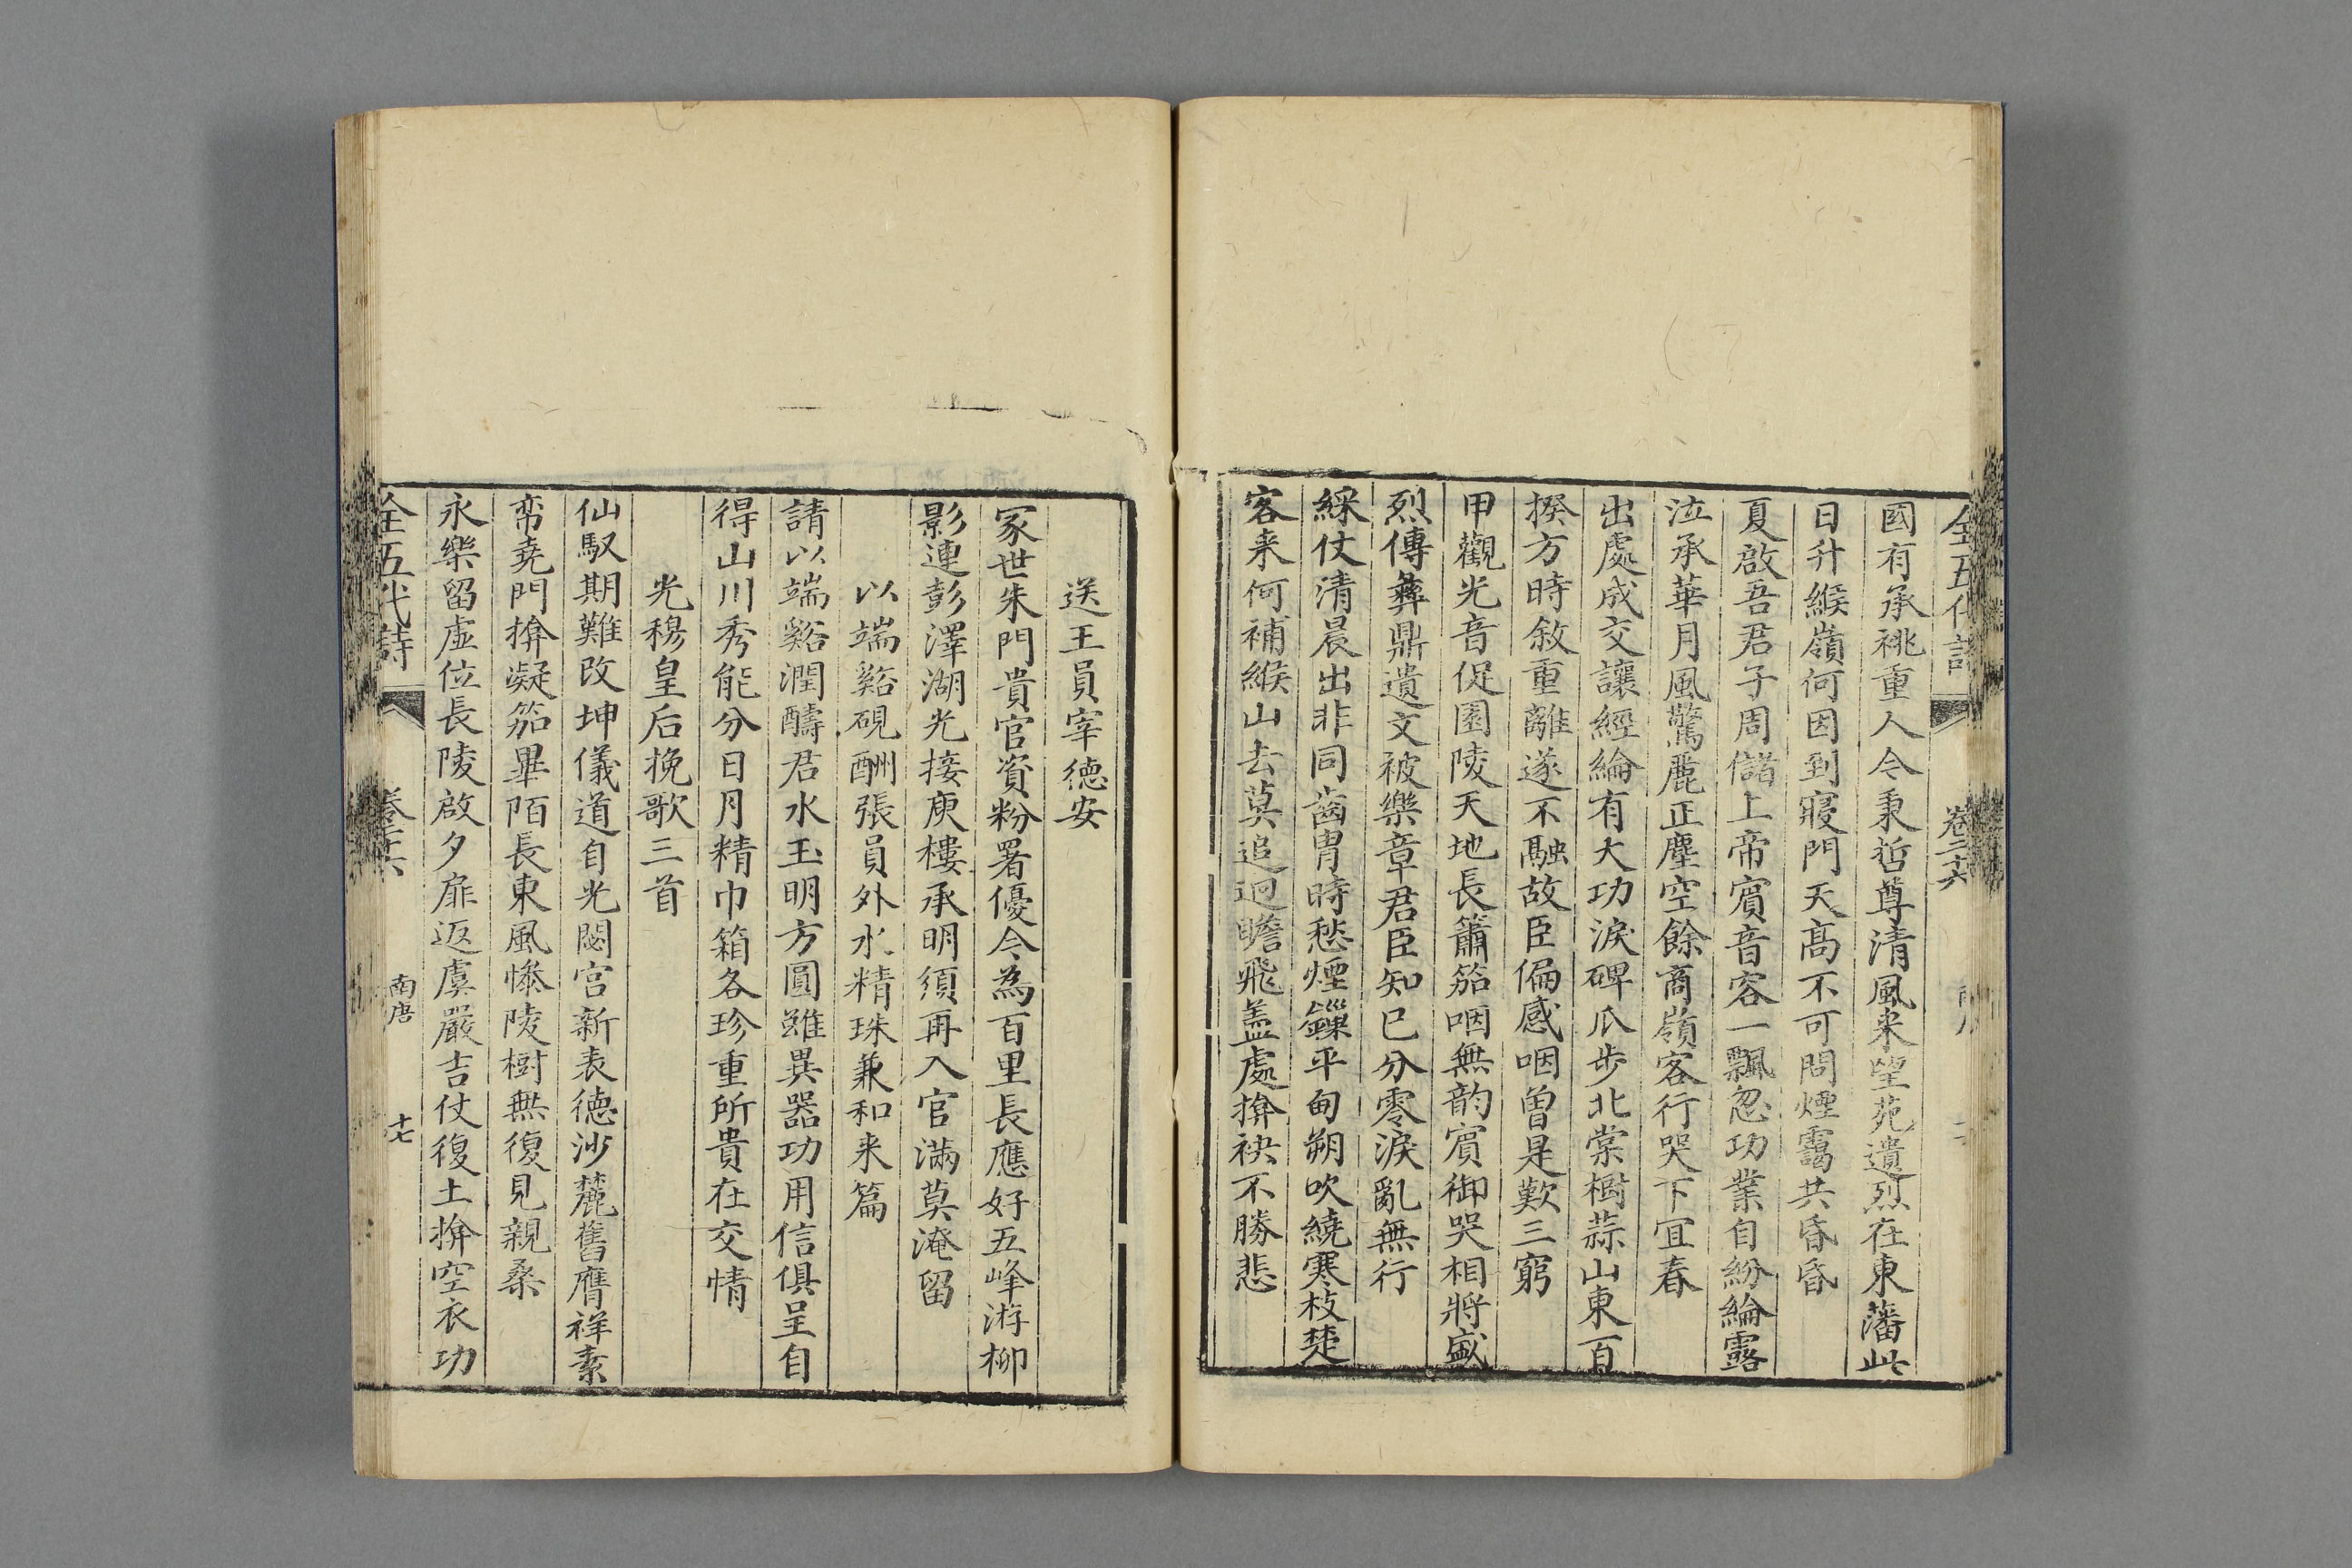 全五代詩 卷二十六
國有承祧重人今秉哲尊清風來望苑遺烈在東藩此
日升緱嶺何因到寢門天高不可問煙靄共昏昏
夏啟吾君子周儲上帝賓音容一飄忽功業自紛綸露
泣承華月風驚麗正塵空餘商嶺客行哭下宜春
出處成交讓經綸有大功淚碑瓜步北棠樹蒜山東百
揆方時敘重離遂不融故臣偏感咽曾是歎三窮
甲觀光音促園陵天地長簫笳咽無韵賓御哭相將盛
烈傳彝鼎遺文被樂章君臣知己分零淚亂無行
綵仗清晨出非同齒冑時愁煙鏁平甸朔吹繞寒枝楚
客來何補緱山去莫追迴瞻飛盖處揜袂不勝悲
送王員宰德安
冢世朱門貴官資粉署優今為百里長應好五峰游柳
影連彭澤湖光接庾樓承明須再入官滿莫淹留
以端谿硯酬張員外水精珠兼和来篇
請以端谿潤醻君水玉明方圓雖異器功用信俱呈自
得山川秀能分日月精巾箱各珍重所貴在交情
光穆皇后挽歌三首
仙馭期難改坤儀道自光閟宫新表德沙麓舊膺祥素
帟堯門揜凝笳畢陌長東風慘陵樹無復見親桑
永樂留虛位長陵啟夕扉返虞嚴吉仗復土揜空衣功
全五代詩 卷二十六 南唐 十七